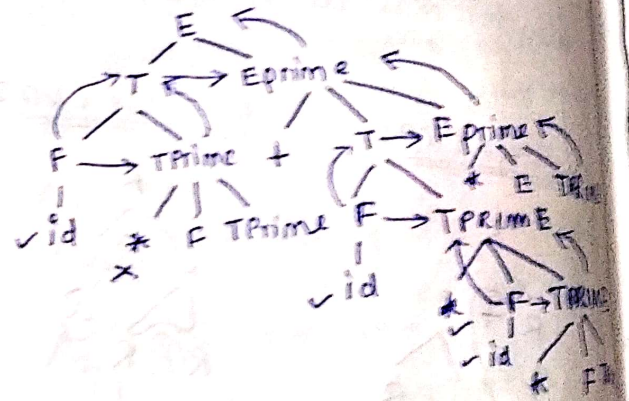 E
T Eprime
F TPrime + T Eprime
id * F TPrime F TPRIME * E
x id * F TPRIME
id * F